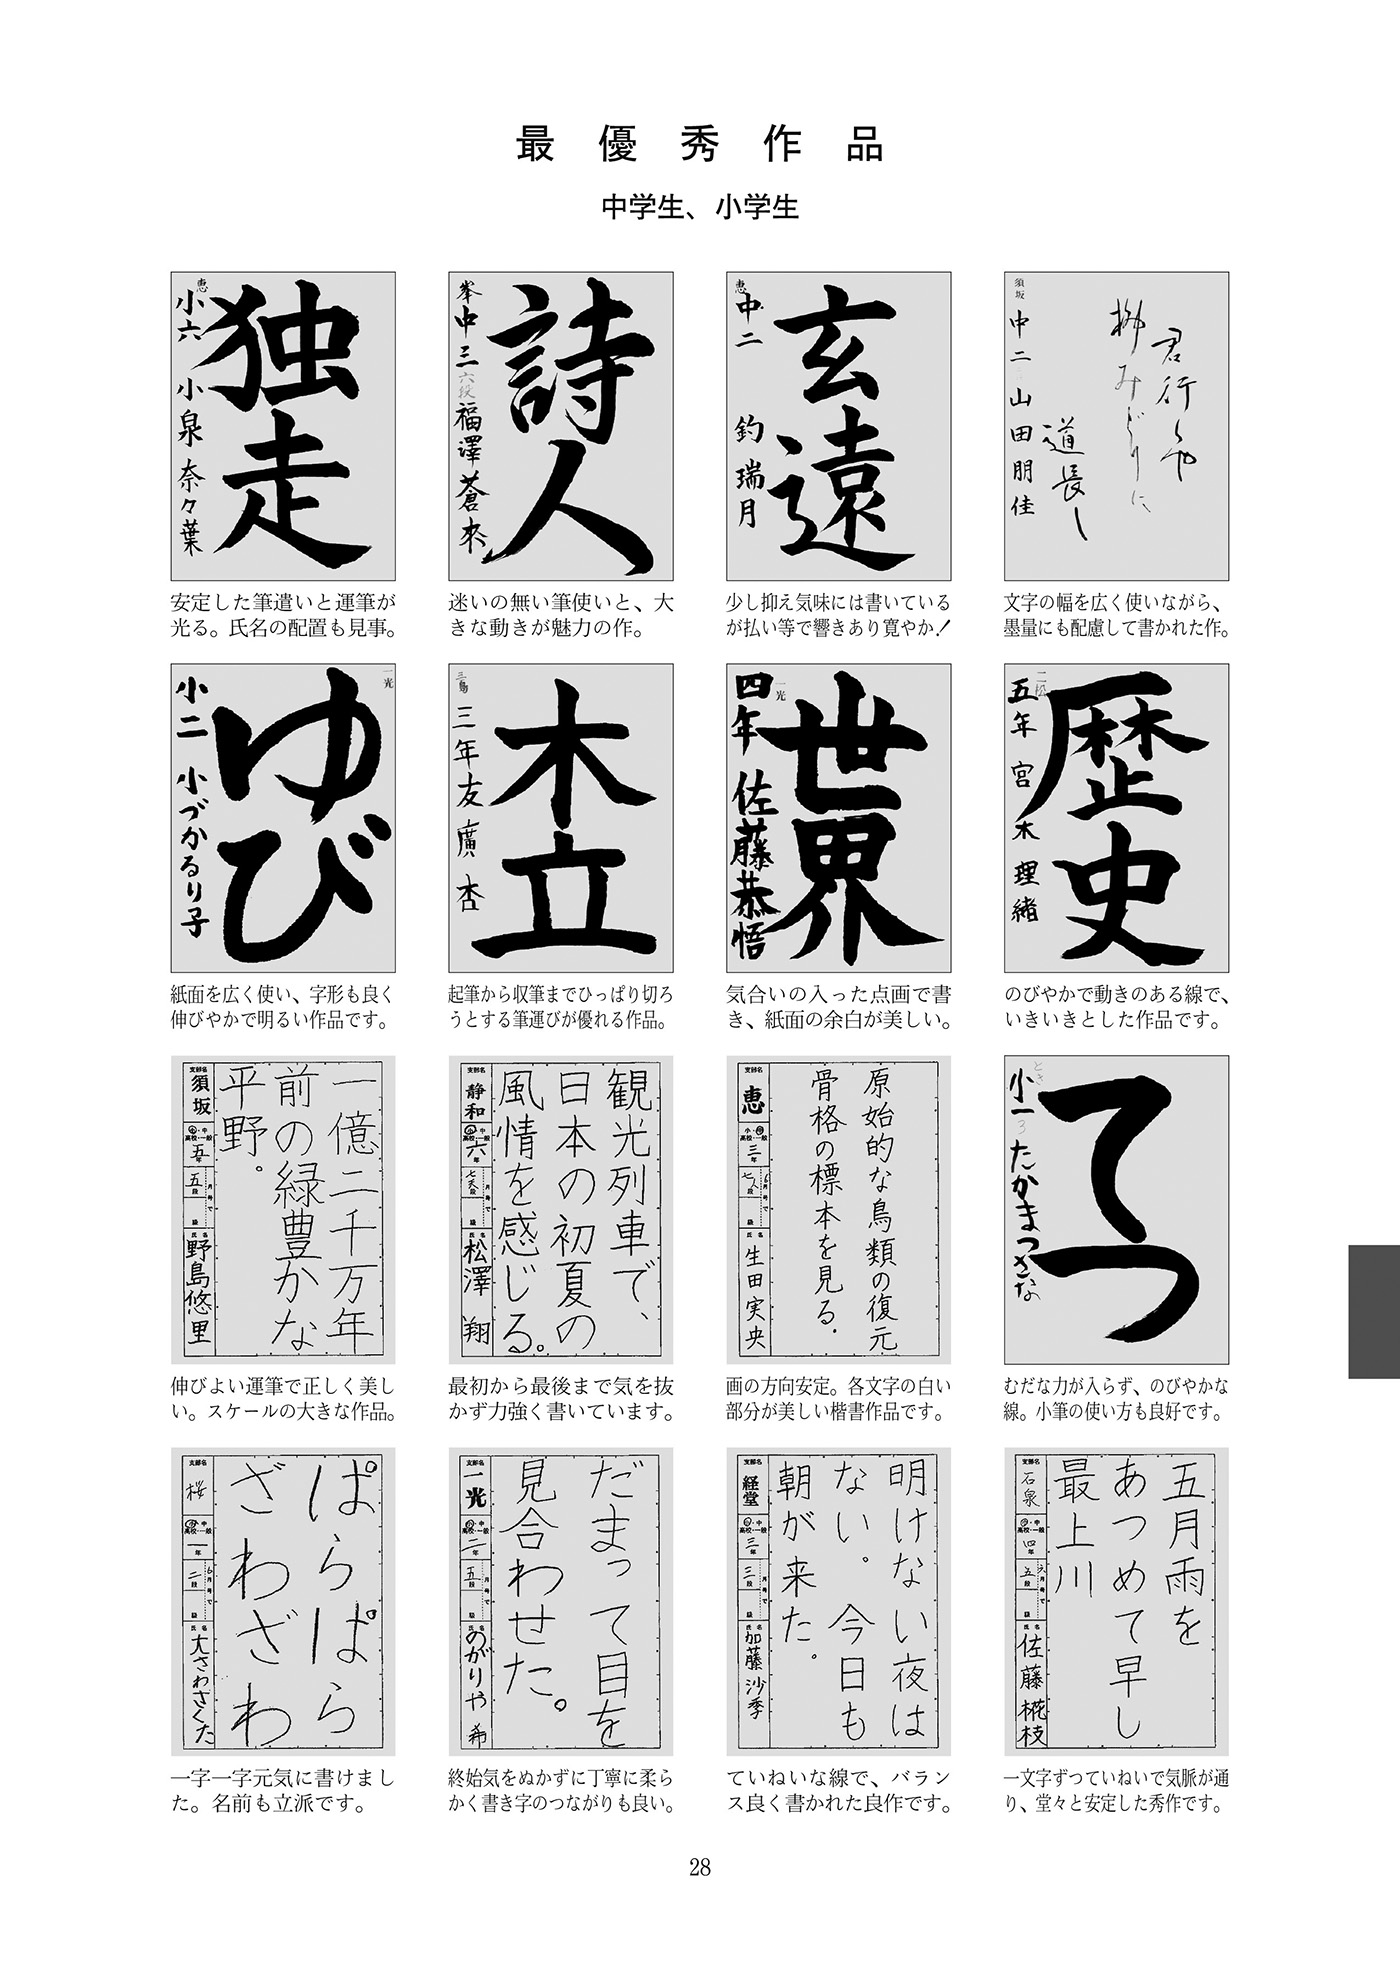 最優秀作品
中学生、小学生
須坂
中二 山田朋佳
君行くや
柳みどりに
道長し
文字の幅を広く使いながら、
墨量にも配慮して書かれた作。
恵
中二 釣瑞月
玄遠
少し抑え気味には書いている
が払い等で響きあり寛やか！
峯
中三
六段
福澤蒼來
詩人
迷いの無い筆使いと、大
きな動きが魅力の作。
恵
小六 小泉奈々葉
独走
安定した筆遣いと運筆が
光る。氏名の配置も見事。
五年 宮木理緒
歴史
のびやかで動きのある線で、
いきいきとした作品です。
一光
四年 佐藤恭悟
世界
気合いの入った点画で書
き、紙面の余白が美しい。
三島
三年 友廣杏
木立
起筆から収筆までひっぱり切ろ
うとする筆運びが優れる作品。
一光
小二 小づかるり子
ゆび
紙面を広く使い、字形も良く
伸びやかで明るい作品です。
とき
小一
たかまつさな
てつ
むだな力が入らず、のびやかな
線。小筆の使い方も良好です。
原始的な鳥類の復元
骨格の標本を見る.
支部名
恵
小・中
高校・一般
三年
月号で
段
級
氏名
生田実央
画の方向安定。各文字の白い
部分が美しい楷書作品です。
観光列車で、
日本の初夏の
風情を感じる。
支部名
静和
小・中
高校・一般
六年
月号で
段
級
氏名
松澤 翔
最初から最後まで気を抜
かず力強く書いています。
一億二千万年
前の緑豊かな
平野。
支部名
須坂
小・中
高校・一般
五年
月号で
五段
級
氏名
野島悠里
伸びよい運筆で正しく美し
い。スケールの大きな作品。
五月雨を
あつめて早し
最上川
支部名
石泉
小・中
高校・一般
四年
月号で
五段
級
氏名
佐藤椛枝
一文字ずつていねいで気脈が通
り、堂々と安定した秀作です。
明けない夜は
ない。今日も
朝が来た。
支部名
経堂
小・中
高校・一般
三年
月号で
三段
級
氏名
加藤沙季
ていねいな線で、バラン
ス良く書かれた良作です。
だまって目を
見合わせた。
支部名
一光
小・中
高校・一般
二年
月号で
五段
級
氏名
のがりや 希
終始気をぬかずに丁寧に柔ら
かく書き字のつながりも良い。
ぱらぱら
ざわざわ
支部名
桜
小・中
高校・一般
一年
6月号で
二段
級
氏名
大さわさくた
一字一字元気に書けまし
た。名前も立派です。
28